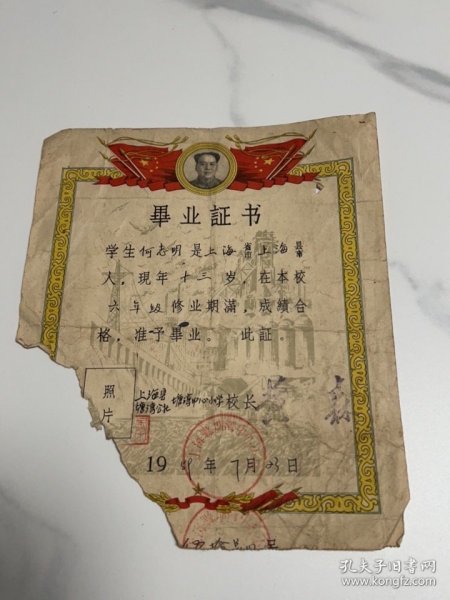 畢业証书
学生何志明是上海省市上海县市
人，現年十三岁，在本校
六年级修业期滿，成績合
格，准予畢业。此証。
照片
上海县
塘湾公社
塘湾中心小学校长
1959年7月23日
孔夫子旧书网
www.kongfz.com